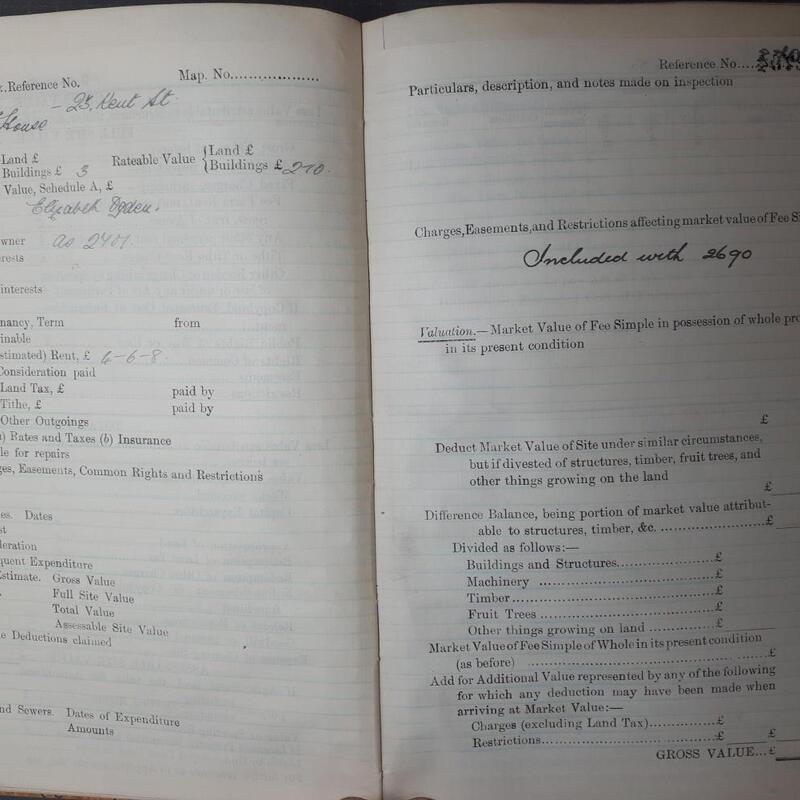 Reference No.
Map. No...................
- 25, Kent St.
House
Land £
Buildings £ 3
Rateable Value
Land £
Buildings £ 210.
Value, Schedule A, £
Elizabeth Ogden.
as 2401.
interests
Term from
Rent, £ 4-6-8
Consideration paid
Land Tax, £ paid by
Tithe, £ paid by
Other Outgoings
Rates and Taxes (b) Insurance
for repairs
Easements, Common Rights and Restrictions
Dates
Expenditure
Estimate. Gross Value
Full Site Value
Total Value
Assessable Site Value
Deductions claimed
Sewers. Dates of Expenditure
Amounts
Reference No.....
Particulars, description, and notes made on inspection
Charges, Easements, and Restrictions affecting market value of Fee
Included with 2690
Valuation.—Market Value of Fee Simple in possession of whole
in its present condition
£
Deduct Market Value of Site under similar circumstances,
but if divested of structures, timber, fruit trees, and
other things growing on the land
£
Difference Balance, being portion of market value attribut-
able to structures, timber, &c. ........................£
Divided as follows:—
Buildings and Structures......................£
Machinery ......................................£
Timber...........................................£
Fruit Trees ......................................£
Other things growing on land ...............£
Market Value of Fee Simple of Whole in its present condition
(as before) ........................................£
Add for Additional Value represented by any of the following
for which any deduction may have been made when
arriving at Market Value:—
Charges (excluding Land Tax)...............£
Restrictions......................................£ £
GROSS VALUE...£